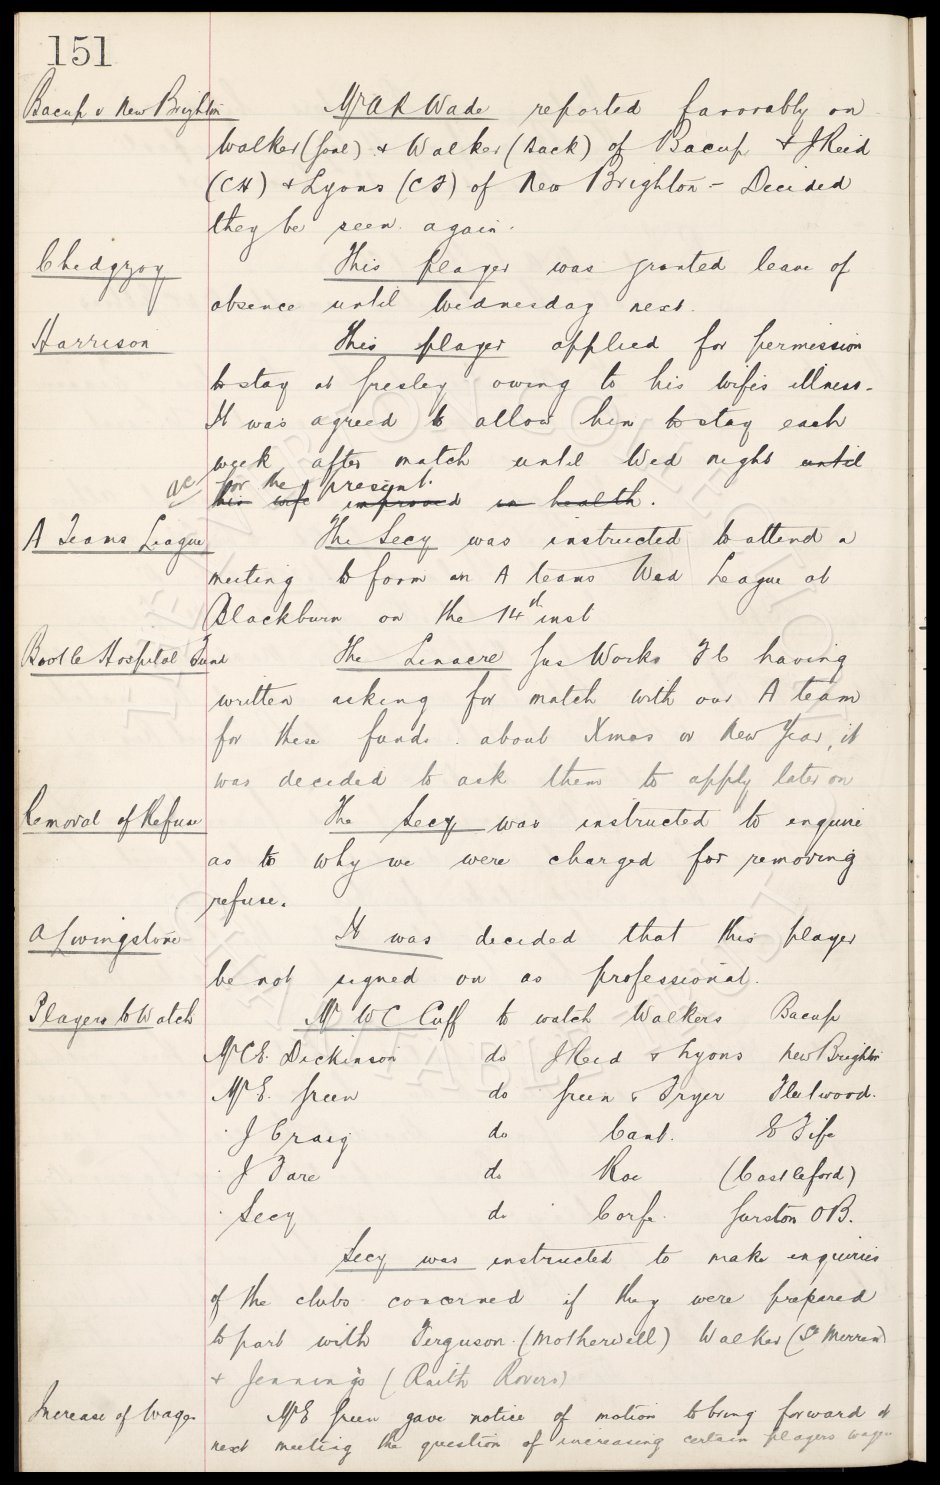 151
Bacup v New Brighton Mr A R Wade reported favorably on
Walker (Goal) & Walker (Back) of Bacup & J Reid
(CH) & Lyons (CF) of New Brighton - Decided
they be seen again.
Chedgzoy This player was granted leave of
absence until Wednesday next.
Harrison This player applied for permission
to stay at Gresley owing to his wife's illness.
It was agreed to allow him to stay each
week after match until Wed night until
for the present.
his wife improved in health.
A Teams League The Secy was instructed to attend a
meeting to form an A teams Wed League at
Blackburn on the 14th inst
Bootle Hospital Fund The Linacre Gas Works FC having
written asking for match with our A team
for these funds about Xmas or New Year, it
was decided to ask them to apply later on
Removal of Refuse The Secy was instructed to enquire
as to why we were charged for removing
refuse.
A Livingstone It was decided that this player
be not signed on as professional.
Players to Watch Mr W C Cuff to watch Walkers Bacup
Mr C E. Dickinson do J Reid & Lyons New Brighton
Mr E. Green do Green & Fryer Fleetwood.
J Craig do Cant. E Fife
J Fare do Roe (Castleford)
Secy do Corfe. Garston OB.
Secy was instructed to make enquiries
of the clubs concerned if they were prepared
to part with Ferguson (Motherwell) Walker (St Mirren)
& Jennings (Raith Rovers)
Increase of Wages Mr E Green gave notice of motion to bring forward at
next meeting the question of increasing certain players wages
THE EVERTON COLLECTION CHARITABLE TRUST